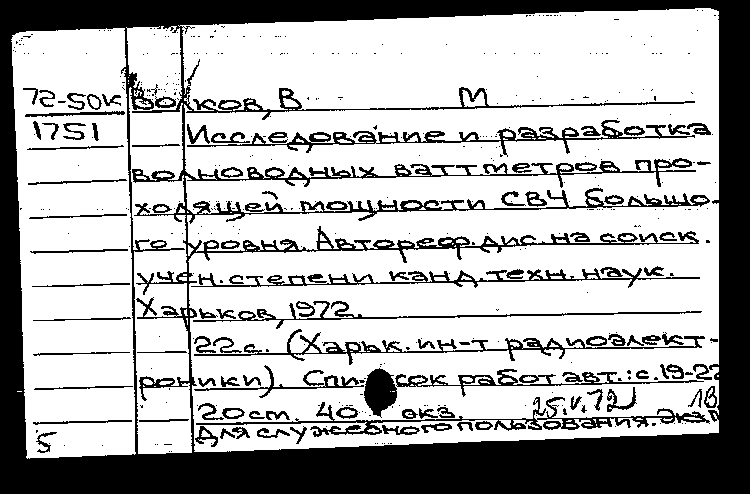 72-50к Волков, В М
1751 Исследование и разработка
волноводных ваттметров про-
ходящей мощности СВЧ большо-
го уровня. Автореф. дис. на соиск.
учен. степени канд. техн. наук.
Харьков, 1972.
22 с. (Харьк. ин-т радиоэлект-
роники). Список работ авт.: с. 19-22
20 ст. 40 экз. 25.V.72 18
5 Для служебного пользования. Экз.